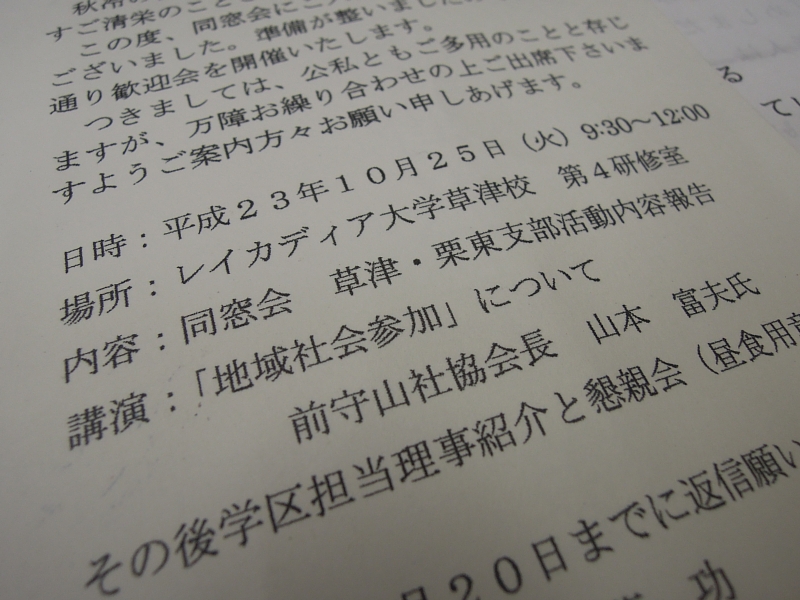 すご清栄のことと
この度、同窓会にご
ございました。準備が整いました
通り歓迎会を開催いたします。
つきましては、公私ともご多用のことと存じ
ますが、万障お繰り合わせの上ご出席下さいま
すようご案内方々お願い申しあげます。
日時：平成２３年１０月２５日（火）9:30～12:00
場所：レイカディア大学草津校　第４研修室
内容：同窓会　草津・栗東支部活動内容報告
講演：「地域社会参加」について
前守山社協会長　山本　富夫氏
その後学区担当理事紹介と懇親会（昼食用
月２０日までに返信願い
功
る
てい